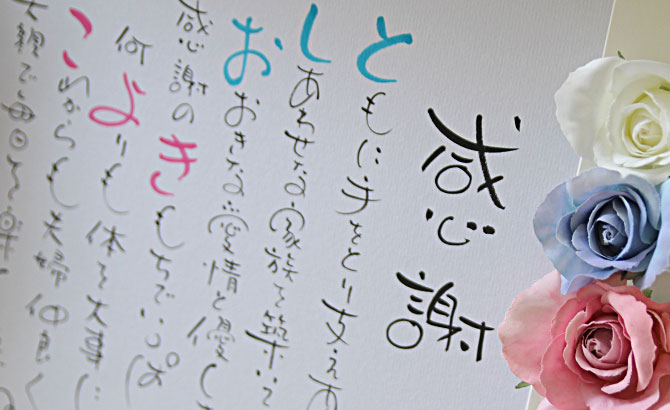 感謝
ともに手をとり支えあ
しあわせな家族を築いて
おおきな愛情と優し
感謝のきもちでいっぱ
何よりも体を大事に
これからも夫婦仲良く
大親で毎日を